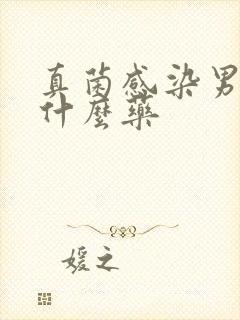 真菌感染男
什麼藥
媛之